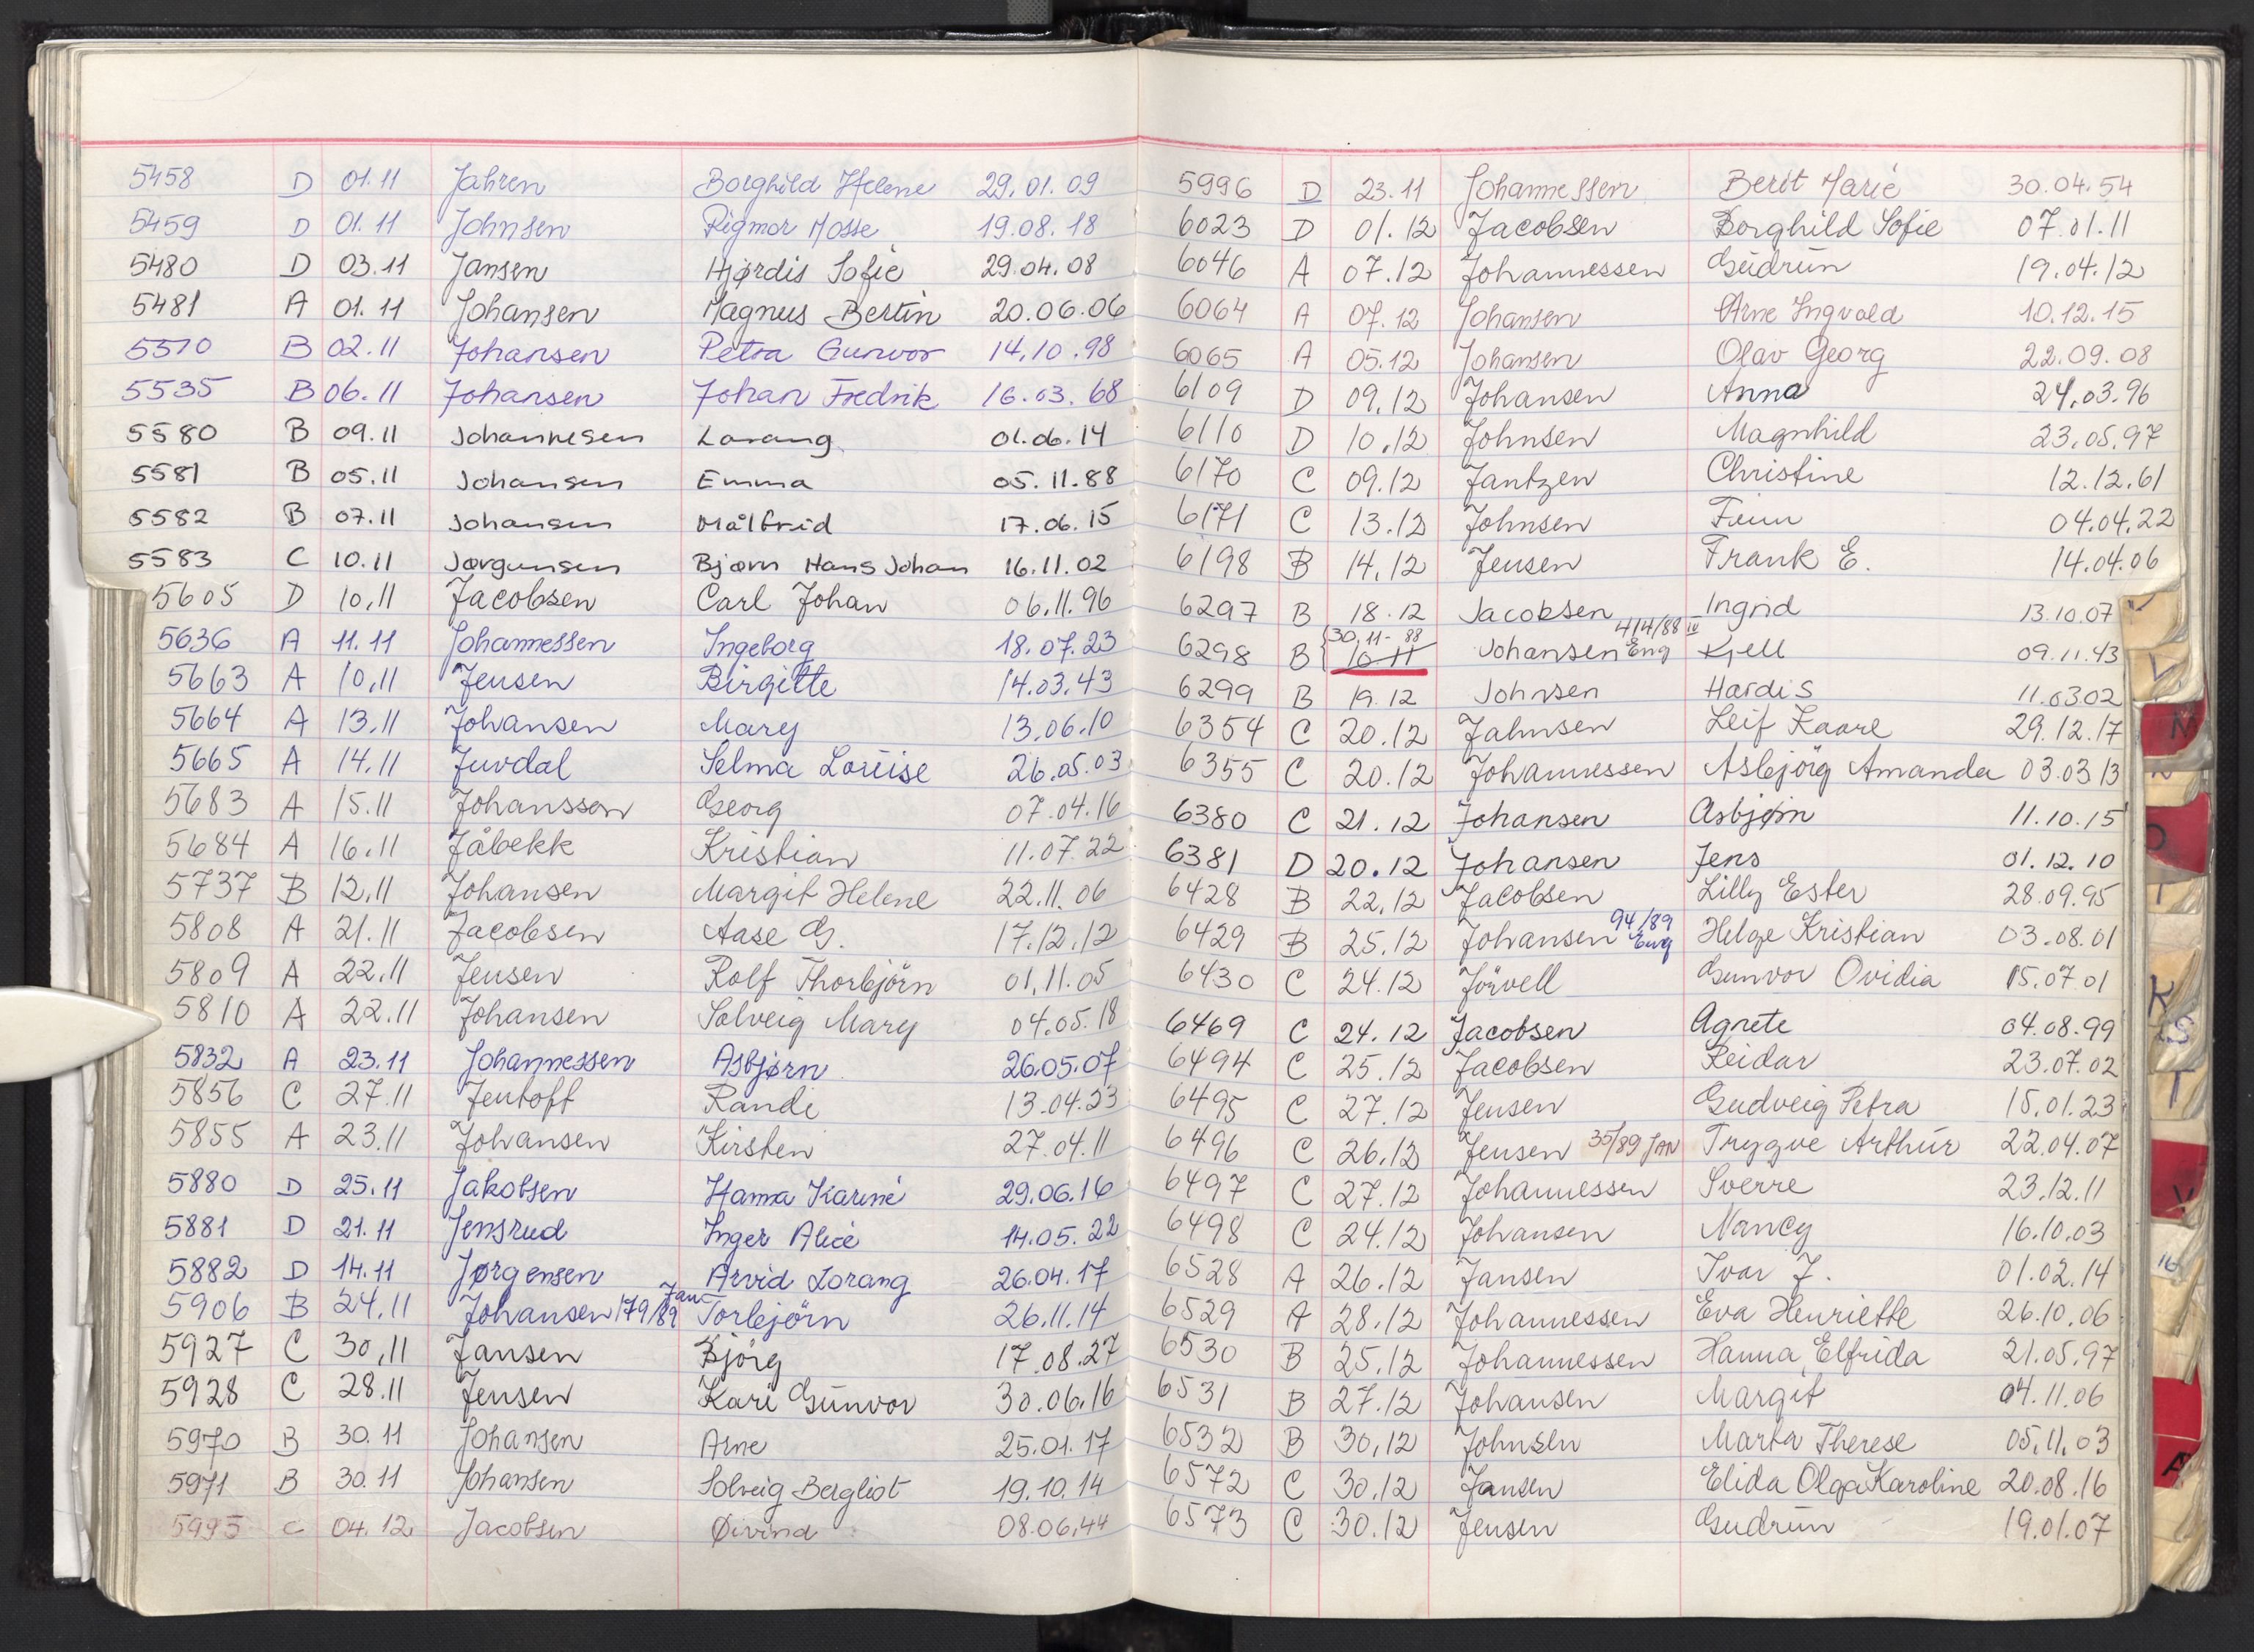 5458 D 01.11 Jahren Borghild Helene 29.01.09
5459 D 01.11 Johnsen Rigmor Mosse 19.08.18
5480 D 03.11 Jansen Hjørdis Sofie 29.04.08
5481 A 01.11 Johansen Magnus Bertin 20.06.06
5510 B 02.11 Johansen Petra Gunvor 14.10.98
5535 B 06.11 Johansen Johan Fredrik 16.03.68
5580 B 09.11 Johannesen Lorang 01.06.14
5581 B 05.11 Johansen Emma 05.11.88
5582 B 07.11 Johansen Målfrid 17.06.15
5583 C 10.11 Jørgensen Bjørn Hans Johan 16.11.02
5605 D 10.11 Jacobsen Carl Johan 06.11.96
5636 A 11.11 Johannessen Ingeborg 18.07.23
5663 A 10.11 Jensen Birgitte 14.03.43
5664 A 13.11 Johansen Mary 13.06.10
5665 A 14.11 Juvdal Selma Louise 26.05.03
5683 A 15.11 Johansson Georg 07.04.16
5684 A 16.11 Jåbekk Kristian 11.07.22
5737 B 12.11 Johansen Margit Helene 22.11.06
5808 A 21.11 Jacobsen Aase G. 17.12.12
5809 A 22.11 Jensen Rolf Thorbjörn 01.11.05
5810 A 22.11 Johansen Solveig Mary 04.05.18
5832 A 23.11 Johannessen Asbjørn 26.05.07
5856 C 27.11 Jentoft Randi 13.04.23
5855 A 23.11 Johansen Kirsten 27.04.11
5880 D 25.11 Jakobsen Hanna Karine 29.06.16
5881 D 21.11 Jensrud Inger Alice 14.05.22
5882 D 14.11 Jørgensen Arvid Lorang 26.04.17
5906 B 24.11 Johansen 179/89 Jan Torbjörn 26.11.14
5927 C 30.11 Jansen Björg 17.08.27
5928 C 28.11 Jensen Kari Gunvor 30.06.16
5970 B 30.11 Johansen Arne 25.01.17
5971 B 30.11 Johansen Solveig Bergliot 19.10.14
5995 C 04.12 Jacobsen Øivind 08.06.44
5996 D 23.11 Johannessen Berit Marie 30.04.54
6023 D 01.12 Jacobsen Borghild Sofie 07.01.11
6046 A 07.12 Johannessen Gudrun 19.04.12
6064 A 07.12 Johansen Arne Ingvald 10.12.15
6065 A 05.12 Johansen Olav Georg 22.09.08
6109 D 09.12 Johansen Anna 24.03.96
6110 D 10.12 Johnsen Magnhild 23.05.97
6170 C 09.12 Jantzen Christine 12.12.61
6171 C 13.12 Johnsen Finn 04.04.22
6198 B 14.12 Jensen Frank E. 14.04.06
6297 B 18.12 Jacobsen Ingrid 13.10.07
30.11-88 414/88 IV
6298 B 10.11 Johansen Eng Kjell 09.11.43
6299 B 19.12 Johnsen Hardis 11.03 02
6354 C 20.12 Jahnsen Leif Kaare 29.12.17
6355 C 20.12 Johannessen Asbjörg Amanda 03.03 13
6380 C 21.12 Johansen Asbjørn 11.10.15
6381 D 20.12 Johansen Jens 01.12.10
6428 B 22.12 Jacobsen Lilly Ester 28.09.95
94/89
6429 B 25.12 Johansen Eng Helge Kristian 03.08.01
6430 C 24.12 Jörvell Gunvor Ovidia 15.07.01
6469 C 24.12 Jacobsen Agnete 04.08.99
6494 C 25.12 Jacobsen Reidar 23.07.02
6495 C 27.12 Jensen Gudveig Petra 15.01.23
6496 C 26.12 Jensen 35/89 JAN Trygve Arthur 22.04.07
6497 C 27.12 Johannessen Sverre 23.12.11
6498 C 24.12 Johansen Nancy 16.10.03
6528 A 26.12 Jansen Ivar J. 01.02.14
6529 A 28.12 Johannessen Eva Henriette 26.10.06
6530 B 25.12 Johannessen Hanna Elfrida 21.05.97
6531 B 27.12 Johansen Margit 04.11.06
6532 B 30.12 Johnsen Marta Therese 05.11.03
6572 C 30.12 Jansen Elida Olga Karoline 20.08.16
6573 C 30.12 Jensen Gudrun 19.01.07
V
M
K
S
T
V
16
A